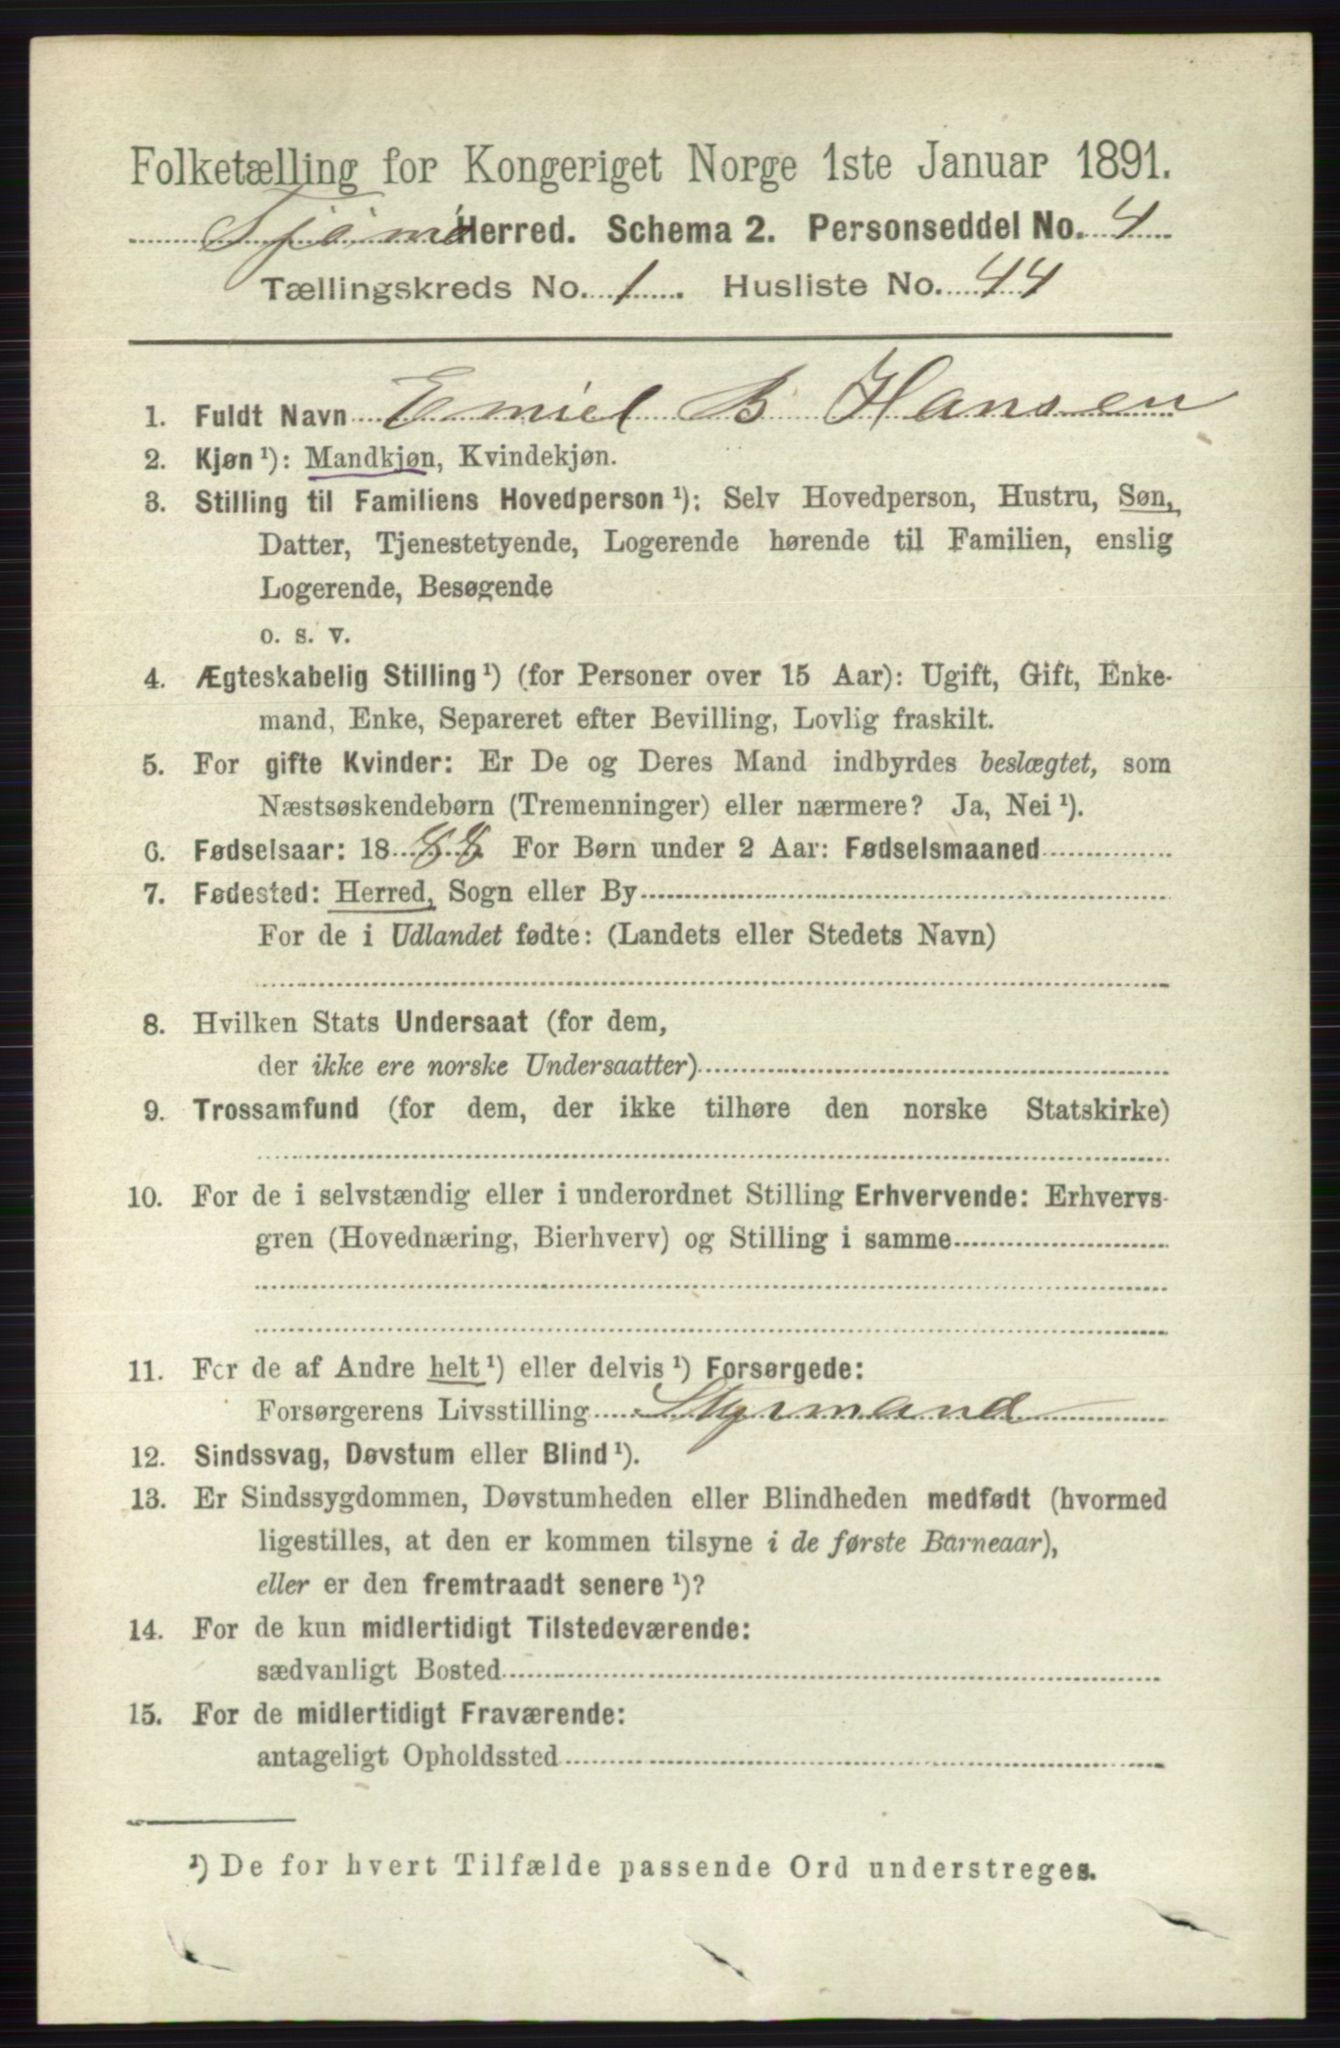 Folketælling for Kongeriget Norge 1ste Januar 1891.
Tjømø Herred. Schema 2. Personseddel No. 4
Tællingskreds No. 1. Husliste No. 44
1. Fuldt Navn Emiel B Hansen
2. Kjøn¹): Mandkjøn, Kvindekjøn.
3. Stilling til Familiens Hovedperson¹): Selv Hovedperson, Hustru, Søn,
Datter, Tjenestetyende, Logerende hørende til Familien, enslig
Logerende, Besøgende
o. s. v.
4. Ægteskabelig Stilling¹) (for Personer over 15 Aar): Ugift, Gift, Enke-
mand, Enke, Separeret efter Bevilling, Lovlig fraskilt.
5. For gifte Kvinder: Er De og Deres Mand indbyrdes beslægtet, som
Næstsøskendebørn (Tremenninger) eller nærmere? Ja, Nei¹).
6. Fødselsaar: 1888. For Børn under 2 Aar: Fødselsmaaned
7. Fødested: Herred, Sogn eller By
For de i Udlandet fødte: (Landets eller Stedets Navn)
8. Hvilken Stats Undersaat (for dem,
der ikke ere norske Undersaatter)
9. Trossamfund (for dem, der ikke tilhøre den norske Statskirke)
10. For de i selvstændig eller i underordnet Stilling Erhvervende: Erhvervs-
gren (Hovednæring, Bierhverv) og Stilling i samme
11. For de af Andre helt¹) eller delvis¹) Forsørgede:
Forsørgerens Livsstilling Styrmand
12. Sindssvag, Døvstum eller Blind¹).
13. Er Sindssygdommen, Døvstumheden eller Blindheden medfødt (hvormed
ligestilles, at den er kommen tilsyne i de første Barneaar),
eller er den fremtraadt senere¹)?
14. For de kun midlertidigt Tilstedeværende:
sædvanligt Bosted
15. For de midlertidigt Fraværende:
antageligt Opholdssted
¹) De for hvert Tilfælde passende Ord understreges.